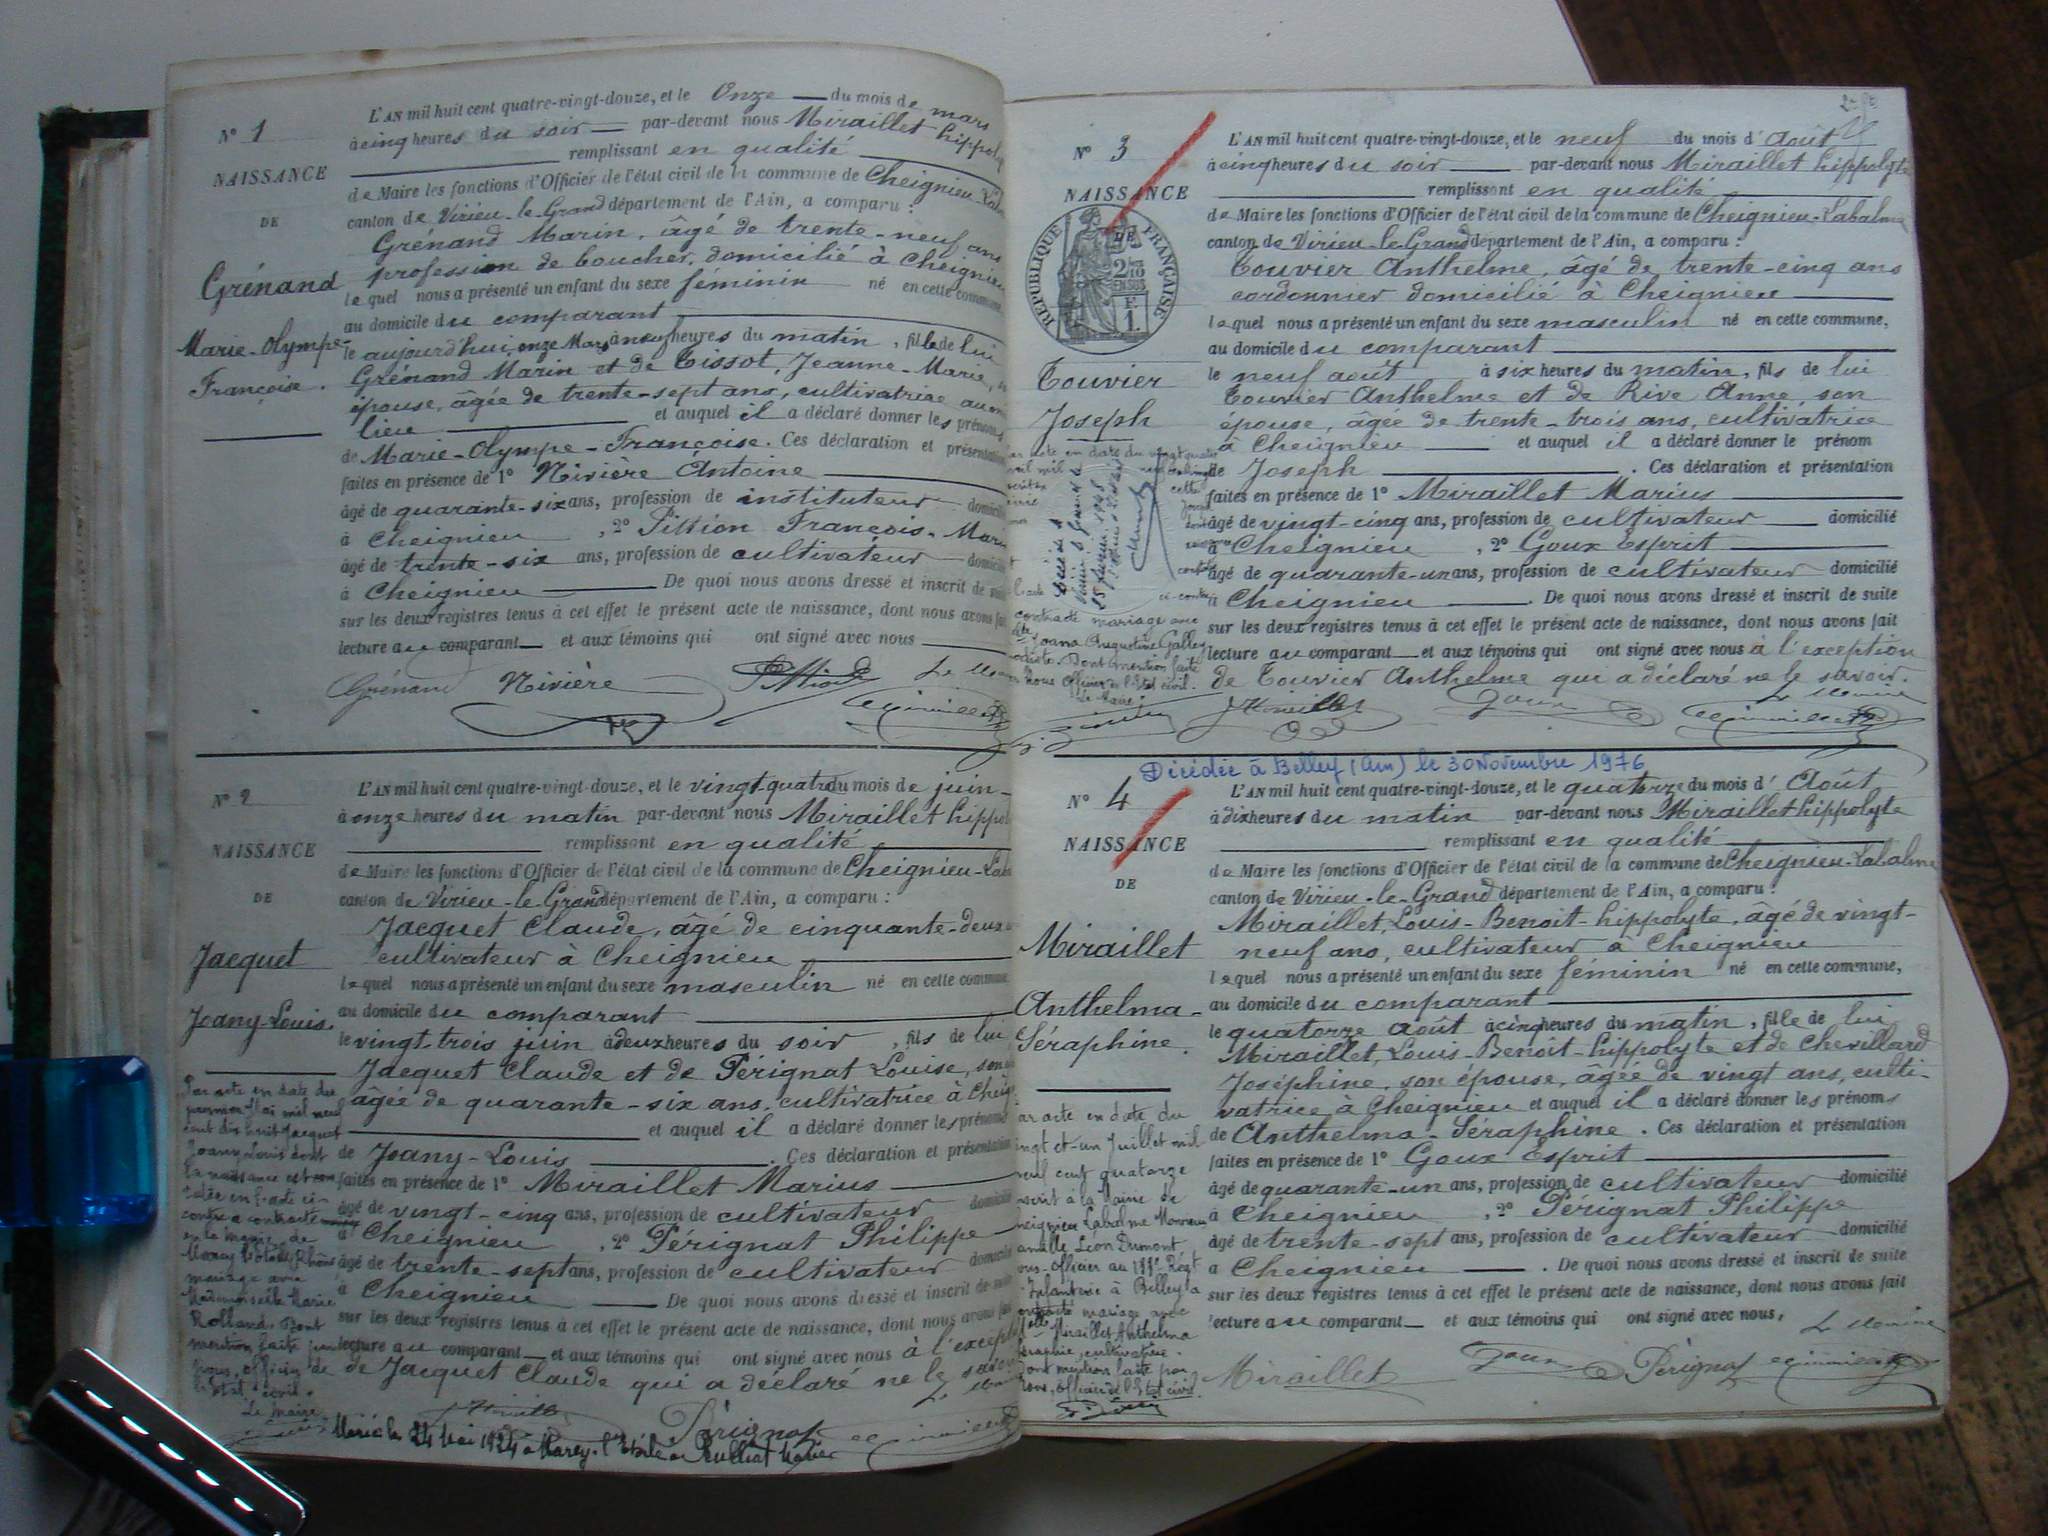 L'AN mil huit cent quatre-vingt-douze, et le Onze du mois de mars
N° 1
à cinq heures du soir par-devant nous Miraillet hippoly
remplissant en qualité
NAISSANCE
de Maire les fonctions d'Officier de l'état civil de la commune de Cheignieu-Laba
DE
canton de Virieu-le-Grand département de l'Ain, a comparu :
Grénand Marin, âgé de trente-neuf ans
profession de boucher, domicilié à Cheignieu
Grénand
le quel nous a présenté un enfant du sexe féminin né en cette commune
au domicile du comparant
Marie-Olympe-
le aujourd'hui, onze Mars à neuf heures du matin, fille de lui
Françoise.
Grénand Marin et de Tissot, Jeanne-Marie,
épouse, âgée de trente-sept ans, cultivatrice au
lieu et auquel il a déclaré donner les prénoms
de Marie-Olympe-Françoise. Ces déclaration et présentation
faites en présence de 1° Nivière Antoine
âgé de quarante-six ans, profession de instituteur domicilié
à Cheignieu, 2° Pittion François-Mari
âgé de trente-six ans, profession de cultivateur domicilié
à Cheignieu De quoi nous avons dressé et inscrit de suite
sur les deux registres tenus à cet effet le présent acte de naissance, dont nous avons fait
lecture au comparant et aux témoins qui ont signé avec nous
Grénand Nivière Pittion Le Maire
L'AN mil huit cent quatre-vingt-douze, et le vingt-quatre du mois de juin
N° 2
à onze heures du matin par-devant nous Miraillet hippol
remplissant en qualité
NAISSANCE
de Maire les fonctions d'Officier de l'état civil de la commune de Cheignieu-Laba
DE
canton de Virieu-le-Grand département de l'Ain, a comparu :
Jacquet Claude, âgé de cinquante-deux
Jacquet
cultivateur à Cheignieu
le quel nous a présenté un enfant du sexe masculin né en cette commune
Joany-Louis.
au domicile du comparant
le vingt-trois juin à deux heures du soir, fils de lui
Jacquet Claude et de Pérignat Louise, son
âgée de quarante-six ans, cultivatrice à Cheig
et auquel il a déclaré donner les prénoms
de Joany-Louis. Ces déclaration et présentation
faites en présence de 1° Miraillet Marius
âgé de vingt-cinq ans, profession de cultivateur domicilié
à Cheignieu, 2° Pérignat Philippe
âgé de trente-sept ans, profession de cultivateur domicilié
à Cheignieu De quoi nous avons dressé et inscrit de suite
sur les deux registres tenus à cet effet le présent acte de naissance, dont nous avons fait
lecture au comparant et aux témoins qui ont signé avec nous à l'excep
de Jacquet Claude qui a déclaré ne le savoir
Par acte en date du
premier Mai mil neuf
cent dix huit Jacquet
Joany Louis dont
la naissance est
en l'acte ci-
contre a contracté
en la mairie de
Marcy l'Etoile, Rhône
mariage avec
Mademoiselle Marie
Rolland. Dont
mention faite par
nous, officier de
l'Etat civil.
Le Maire
Pérignat
Marié le 24 Mai 1924 à Marcy-l'Etoile
L'AN mil huit cent quatre-vingt-douze, et le neuf du mois d'Août
N° 3
à cinq heures du soir par-devant nous Miraillet hippolyte
NAISSANCE
remplissant en qualité
de Maire les fonctions d'Officier de l'état civil de la commune de Cheignieu-Labalme
canton de Virieu-le-Grand département de l'Ain, a comparu :
RÉPUBLIQUE FRANÇAISE
2/10 EN SUS
F. 1.
Touvier Anthelme, âgé de trente-cinq ans
cordonnier domicilié à Cheignieu
le quel nous a présenté un enfant du sexe masculin né en cette commune,
au domicile du comparant
Touvier
le neuf août à six heures du matin, fils de lui
Touvier Anthelme et de Rive Anne, son
Joseph
épouse, âgée de trente-trois ans, cultivatrice
à Cheignieu et auquel il a déclaré donner le prénom
de Joseph. Ces déclaration et présentation
faites en présence de 1° Miraillet Marius
âgé de vingt-cinq ans, profession de cultivateur domicilié
à Cheignieu, 2° Goux Esprit
âgé de quarante-un ans, profession de cultivateur domicilié
à Cheignieu. De quoi nous avons dressé et inscrit de suite
sur les deux registres tenus à cet effet le présent acte de naissance, dont nous avons fait
lecture au comparant et aux témoins qui ont signé avec nous à l'exception
de Touvier Anthelme qui a déclaré ne le savoir.
acte en date du vingt quatre
ci-contre
contracté mariage avec
Joana Augustine Galley
Dont mention faite
nous Officier de l'Etat civil.
Le Maire
Miraillet Goux Le Maire
Décédée à Belley (Ain) le 30 Novembre 1976
L'AN mil huit cent quatre-vingt-douze, et le quatorze du mois d'Août
N° 4
à dix heures du matin par-devant nous Miraillet hippolyte
NAISSANCE
remplissant en qualité
de Maire les fonctions d'Officier de l'état civil de la commune de Cheignieu-Labalme
DE
canton de Virieu-le-Grand département de l'Ain, a comparu :
Miraillet, Louis-Benoit-hippolyte, âgé de vingt-
Miraillet
neuf ans, cultivateur à Cheignieu
le quel nous a présenté un enfant du sexe féminin né en cette commune,
Anthelma-
au domicile du comparant
le quatorze août à cinq heures du matin, fille de lui
Séraphine.
Miraillet, Louis-Benoît-hippolyte et de Chevillard
Joséphine, son épouse, âgée de vingt ans, culti-
vatrice à Cheignieu et auquel il a déclaré donner les prénoms
de Anthelma-Séraphine. Ces déclaration et présentation
faites en présence de 1° Goux Esprit
âgé de quarante-un ans, profession de cultivateur domicilié
à Cheignieu, 2° Pérignat Philippe
âgé de trente-sept ans, profession de cultivateur domicilié
a Cheignieu. De quoi nous avons dressé et inscrit de suite
sur les deux registres tenus à cet effet le présent acte de naissance, dont nous avons fait
lecture au comparant et aux témoins qui ont signé avec nous,
ar acte en date du
ingt-et-un Juillet mil
neuf cent quatorze
nscrit à la Mairie de
heignieu Labalme Monsieur
amille Léon Dumont
ous-Officier au 133e Régt
Infanterie à Belley a
contracté mariage avec
Miraillet Anthelma
éraphine, cultivatrice.
Dont mention faite par
Nous, officier de l'Etat civil.
Le Maire
Miraillet Goux Pérignat